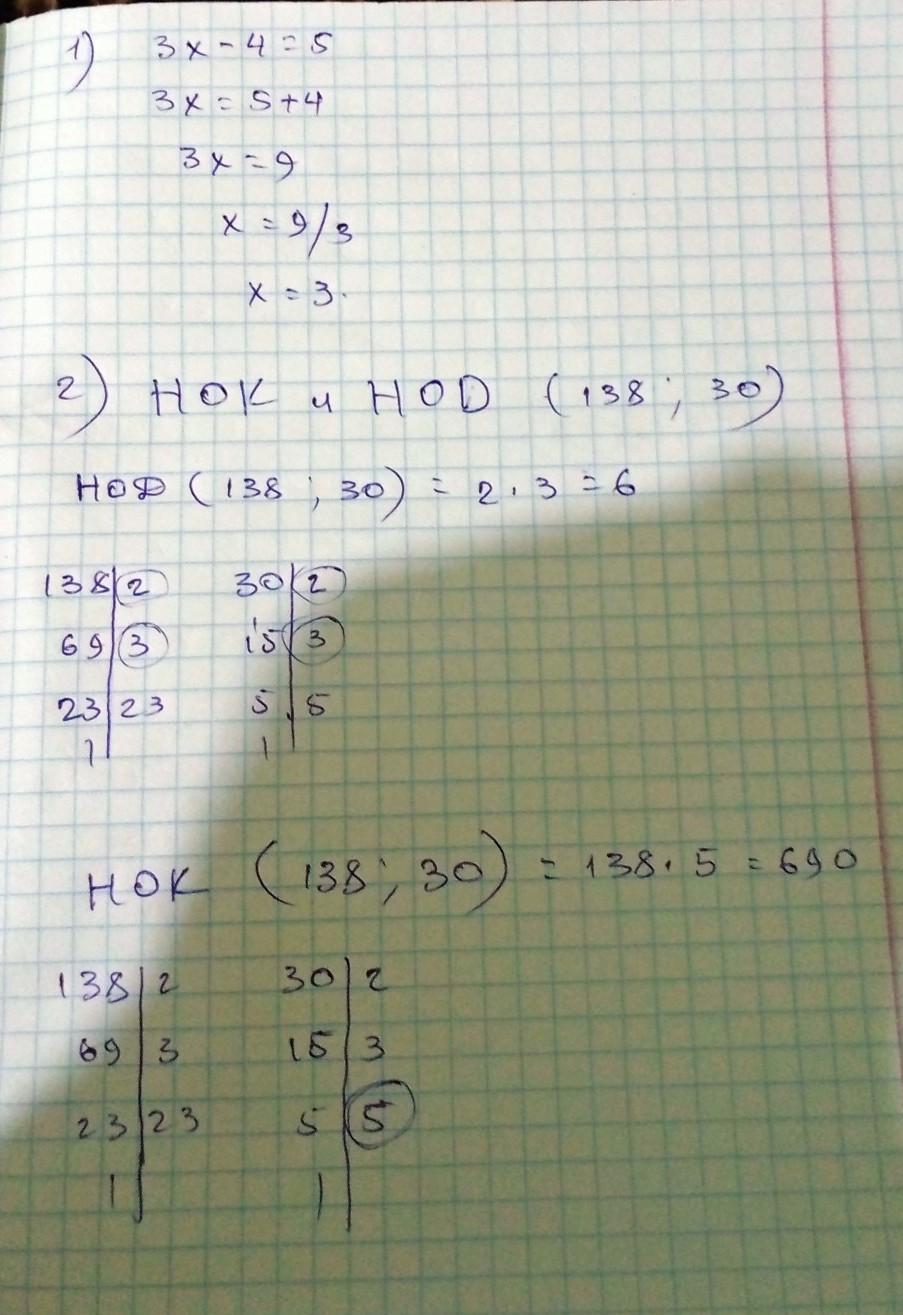 1) 3x - 4 = 5
3x = 5+4
3x = 9
x = 9/3
x = 3.
2) НОК и НОD (138 ; 30)
НОД (138 ; 30) = 2 · 3 = 6
138|2 30|2
69|3 15|3
23|23 5|5
1| 1|
НОК (138 ; 30) = 138 · 5 = 690
138|2 30|2
69|3 15|3
23|23 5|5
1| 1|